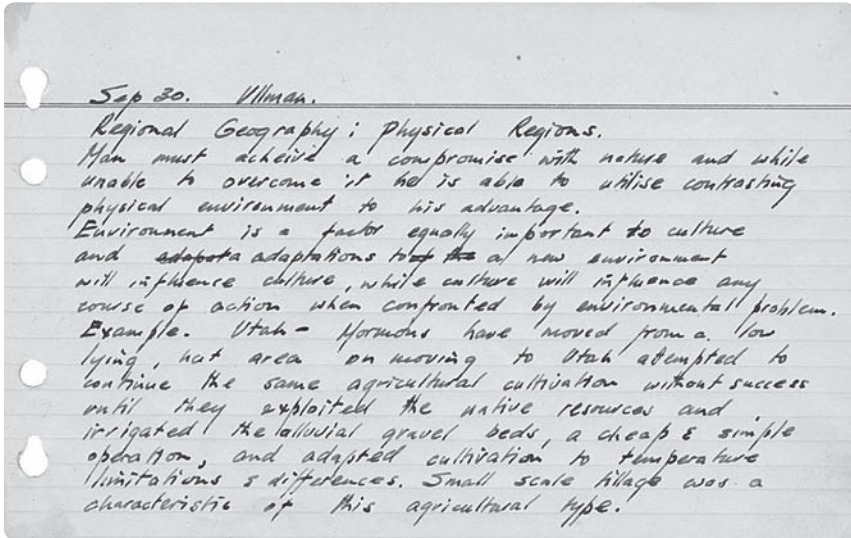 Sep 30. Ullman.
Regional Geography: Physical Regions.
Man must acheive a compromise with nature and while
unable to overcome it he is able to utilise contrasting
physical environment to his advantage.
Environment is a factor equally important to culture
and adaptations to a new environment
will influence culture, while culture will influence any
course of action when confronted by environmental problem.
Example. Utah - Mormons have moved from a low
lying, hot area on moving to Utah attempted to
continue the same agricultural cultivation without success
until they exploited the native resources and
irrigated the alluvial gravel beds, a cheap & simple
operation, and adapted cultivation to temperature
limitations & differences. Small scale tillage was a
characteristic of this agricultural type.